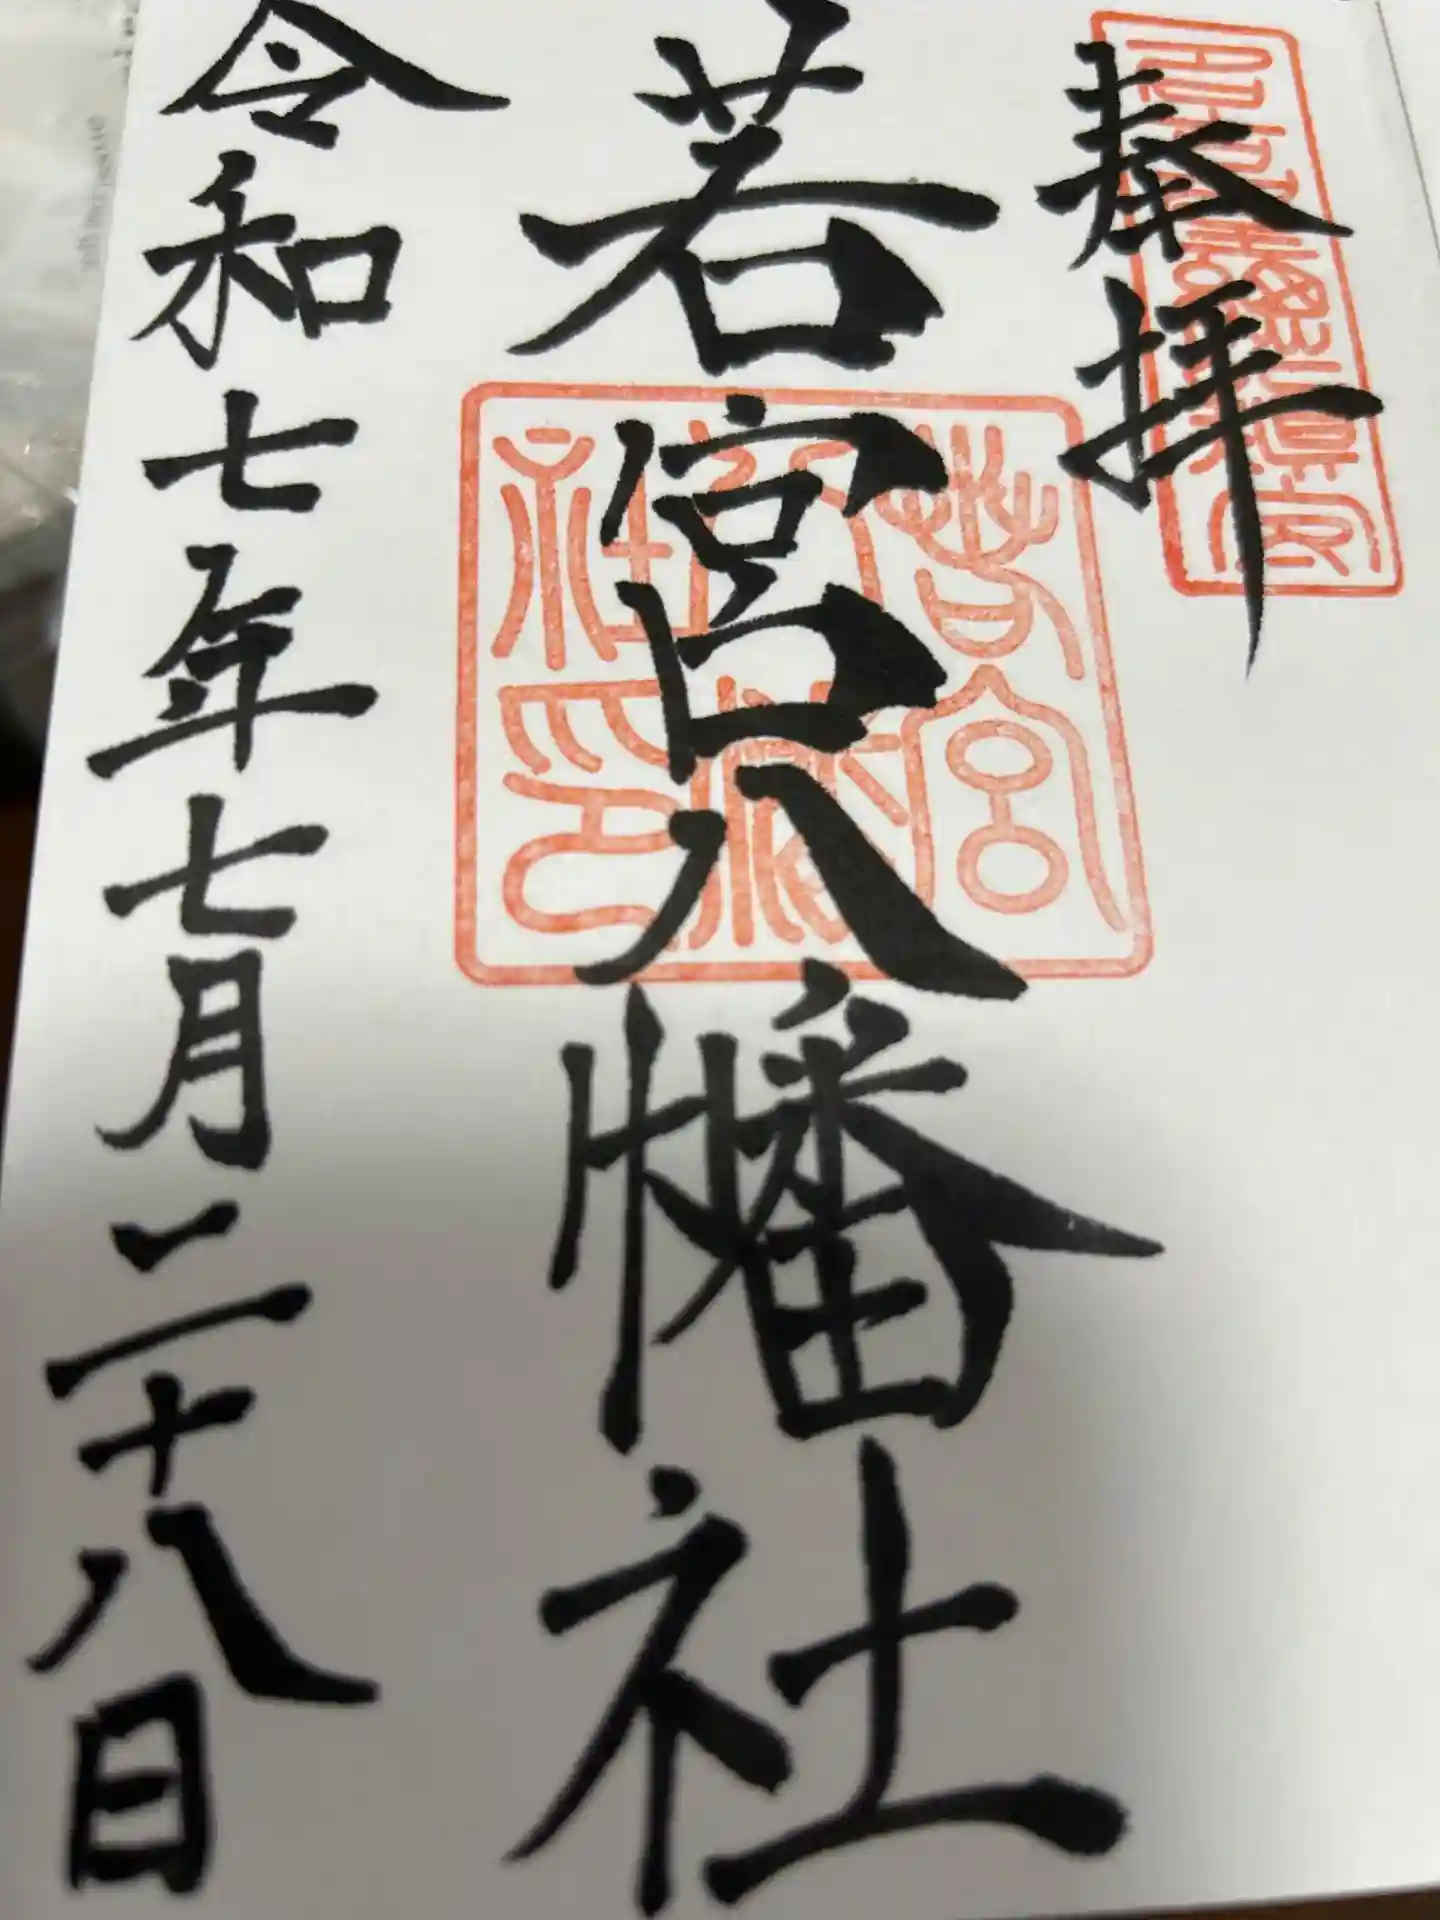 奉拝
若宮八幡社
令和七年七月二十八日
若宮八幡社印